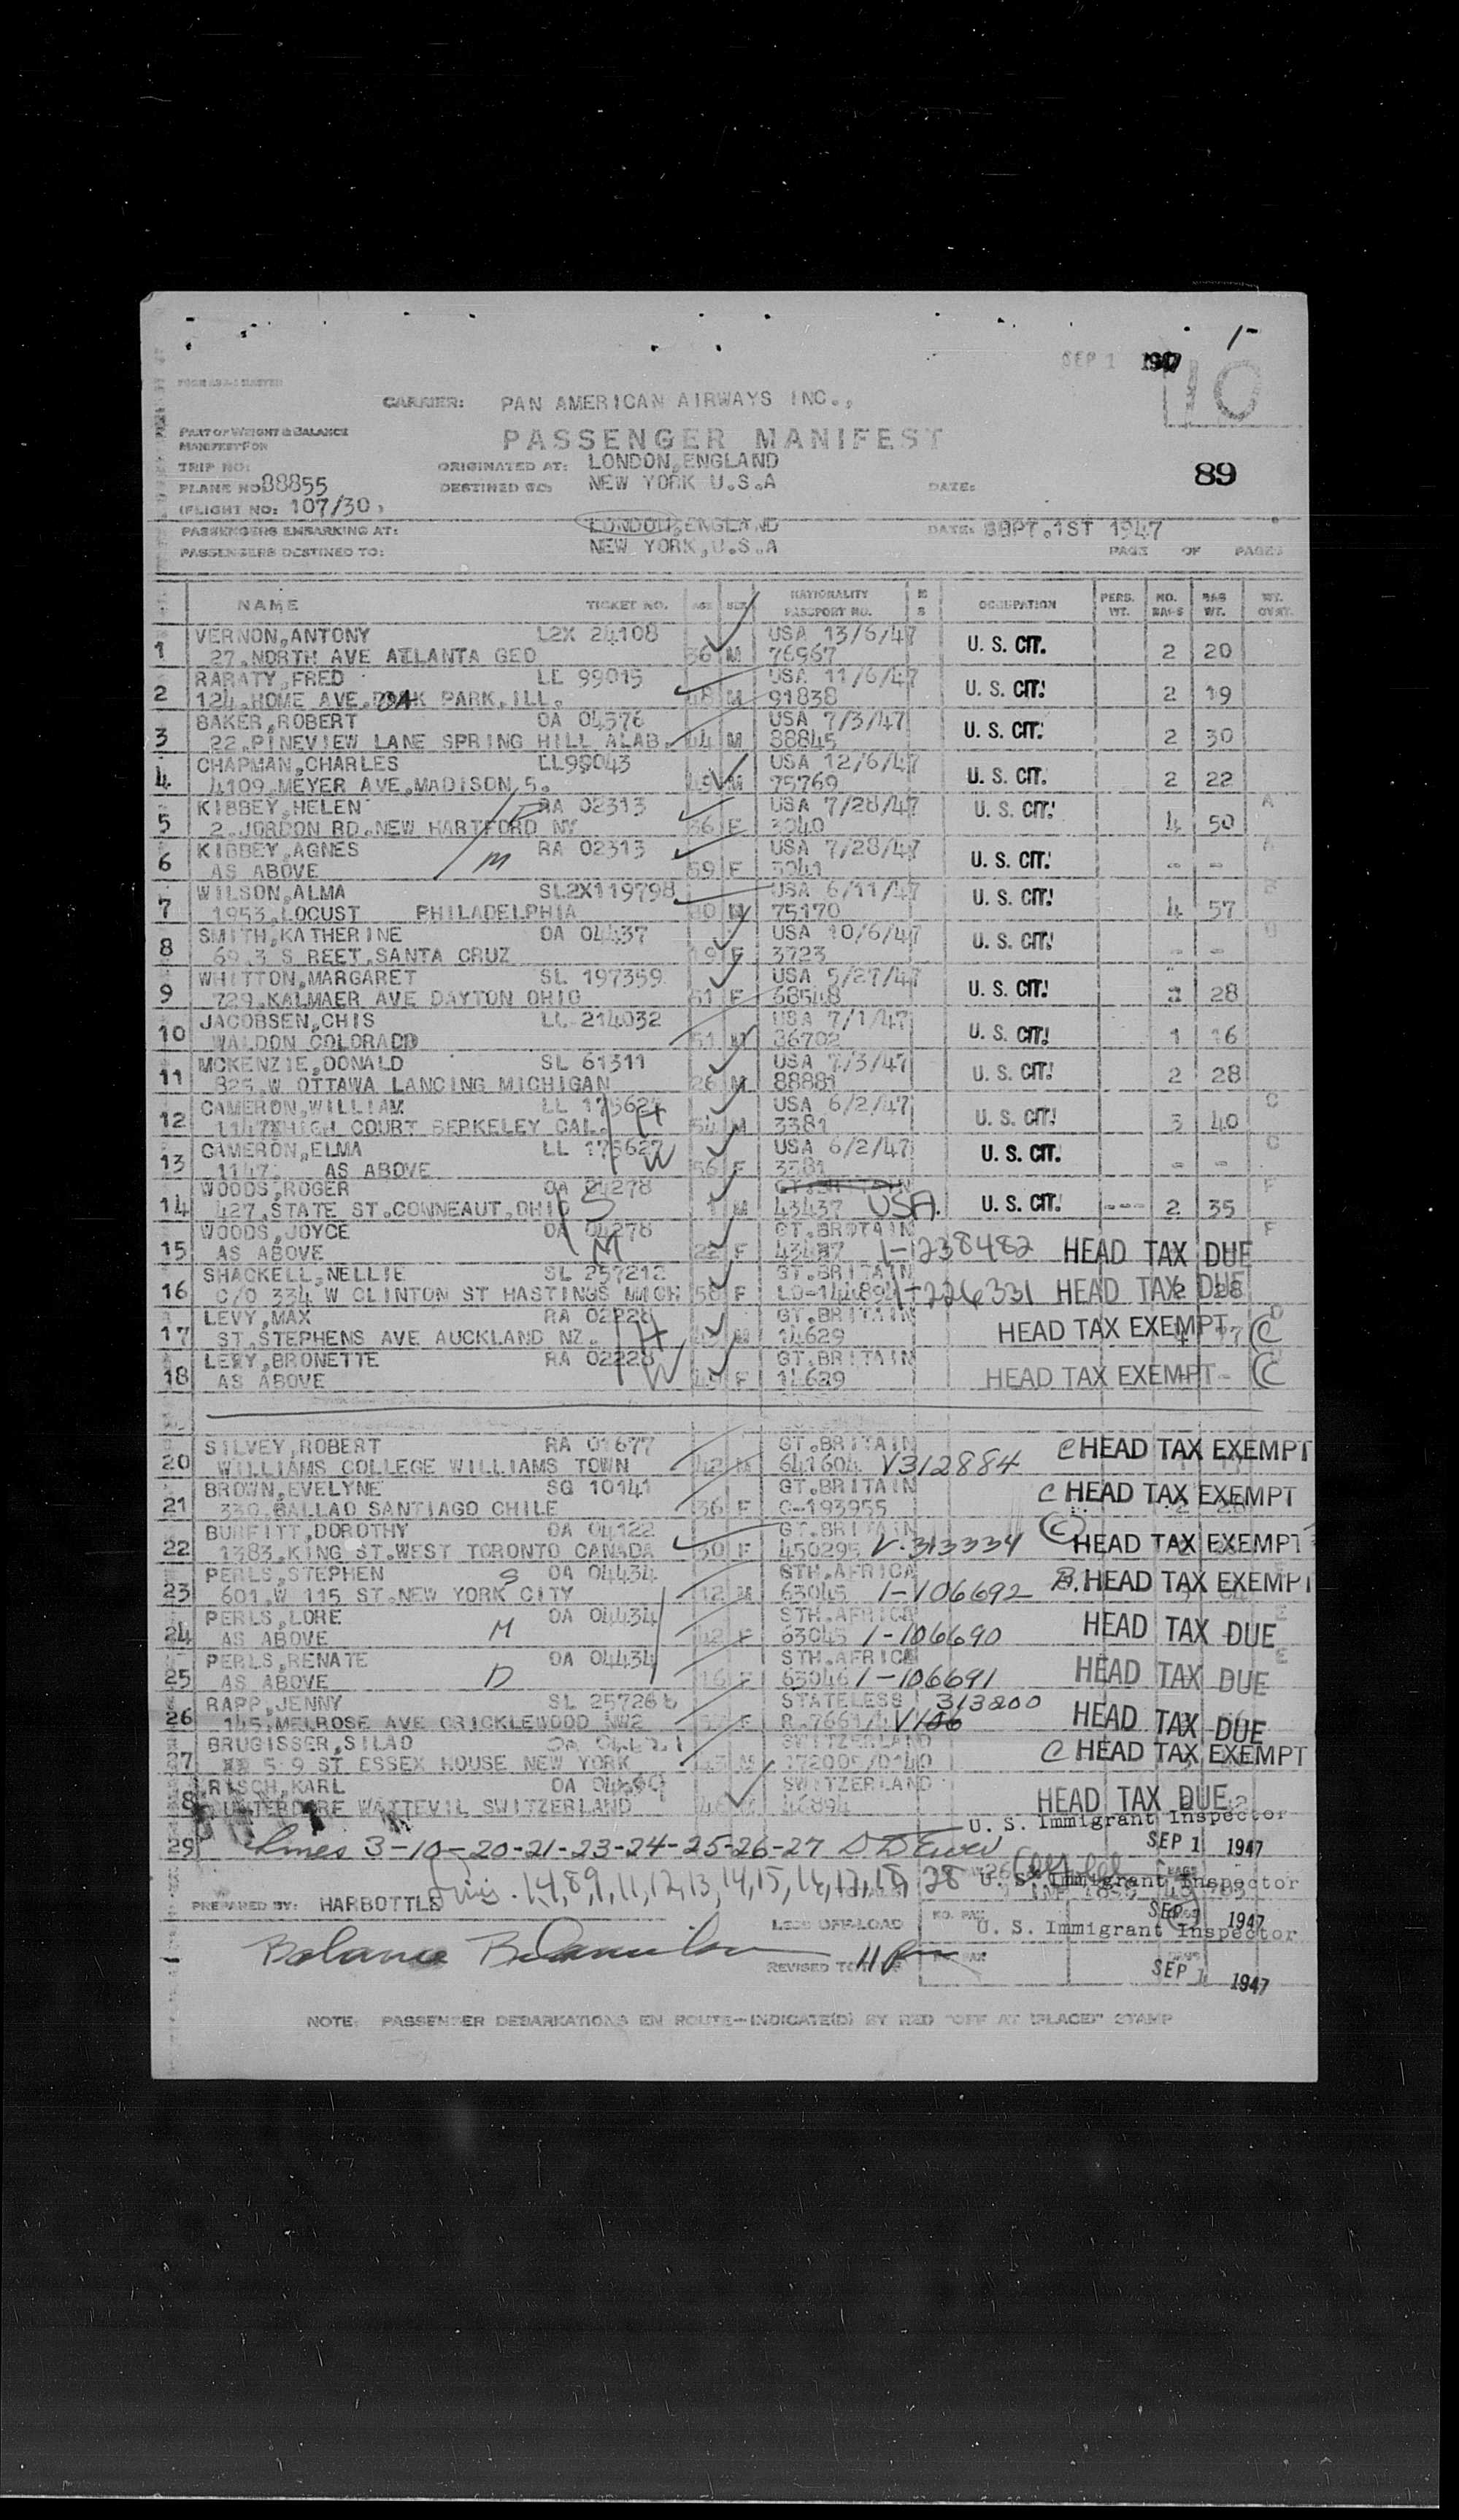 1-
SEP 1 1947
10
CARRIER: PAN AMERICAN AIRWAYS INC.,
PART OF WEIGHT & BALANCE
MANIFEST FOR
PASSENGER MANIFEST
TRIP NO:
ORIGINATED AT: LONDON,ENGLAND
89
PLANE NO: 88855
DESTINED TO: NEW YORK U.S.A
DATE:
(FLIGHT NO: 107/30)
PASSENGERS EMBARKING AT: LONDON,ENGLAND DATE: SEPT.1ST 1947
PASSENGERS DESTINED TO: NEW YORK,U.S.A PAGE OF PAGES
NAME TICKET NO. AGE SEX NATIONALITY PASSPORT NO. M S OCCUPATION PERS. WT. NO. BAGS BAG WT. WT. OVRT.
1 VERNON,ANTONY L2X 24108 USA 13/6/47
27.NORTH AVE ATLANTA GEO 36 M 76967 U. S. CIT. 2 20
2 RARATY,FRED LL 99015 USA 11/6/47
124.HOME AVE. OAK PARK,ILL. 48 M 91838 U. S. CIT. 2 19
3 BAKER,ROBERT OA 04376 USA 7/3/47
22.PINEVIEW LANE SPRING HILL ALAB. 44 M 88845 U. S. CIT. 2 30
4 CHAPMAN,CHARLES LL99043 USA 12/6/47
4109.MEYER AVE.MADISON,5. 49 M 75769 U. S. CIT. 2 22
5 KIBBEY,HELEN RA 02313 USA 7/28/47 A
2.JORDON RD.NEW HARTFORD NY F 3040 U. S. CIT. 4 50
6 KIBBEY,AGNES RA 02313 USA 7/28/47 A
AS ABOVE M 59 F 3041 U. S. CIT. - -
7 WILSON,ALMA SL2X119798 USA 6/11/47 B
1953.LOCUST PHILADELPHIA 75170 U. S. CIT. 4 57
8 SMITH,KATHERINE OA 04437 USA 10/6/47
69.3 S REET.SANTA CRUZ 19 F 3723 U. S. CIT. - -
9 WHITTON,MARGARET SL 197359 USA 5/27/47
729.KALMAER AVE DAYTON OHIO 61 F 68548 U. S. CIT. 28
10 JACOBSEN,CHIS LL-214032 USA 7/1/47
WALDON COLORADO 51 M 86702 U. S. CIT. 1 16
11 MCKENZIE,DONALD SL 61311 USA 7/3/47
825.W OTTAWA LANCING MICHIGAN 26 M 88881 U. S. CIT. 2 28
12 CAMERON,WILLIAM LL 175627 H USA 6/2/47 C
1147 HIGH COURT BERKELEY CAL. 54 M 3381 U. S. CIT. 3 40
13 CAMERON,ELMA LL 175627 W USA 6/2/47 C
1147. AS ABOVE 56 F 3381 U. S. CIT. - -
14 WOODS,ROGER OA 04278 S GT.BRITAIN F
427.STATE ST.CONNEAUT,OHIO 1 M 43437 USA. U. S. CIT. --- 2 35
15 WOODS,JOYCE OA 04278 GT.BROTAIN F
AS ABOVE M 22 F 43437 1-1238482 HEAD TAX DUE
16 SHACKELL,NELLIE SL 257212 GT.BRITAIN
C/O 334 W CLINTON ST HASTINGS MICH 58 F LO-144894 1-226331 HEAD TAX DUE
17 LEVY,MAX RA 02228 H GT.BRITAIN D
ST.STEPHENS AVE AUCKLAND NZ. M 14629 HEAD TAX EXEMPT C
18 LEVY,BRONETTE RA 02228 W GT.BRITAIN
AS ABOVE F 14629 HEAD TAX EXEMPT C
20 SILVEY,ROBERT RA 01677 GT.BRITAIN C HEAD TAX EXEMPT
WILLIAMS COLLEGE WILLIAMS TOWN 42 M 641604 V312884
21 BROWN,EVELYNE SG 10141 GT.BRITAIN C HEAD TAX EXEMPT
330.BALLAD SANTIAGO CHILE 36 F C-193955
22 BURFITT,DOROTHY OA 04122 GT.BRITAIN C HEAD TAX EXEMPT
1383.KING ST.WEST TORONTO CANADA 30 F 450295 V-313334
23 PERLS,STEPHEN S OA 04434 STH.AFRICA B. HEAD TAX EXEMPT
601.W 115 ST.NEW YORK CITY 12 M 63045 1-106692
24 PERLS,LORE M OA 04434 STH.AFRICA HEAD TAX DUE E
AS ABOVE 42 F 63045 1-106690
25 PERLS,RENATE OA 04434 STH.AFRICA HEAD TAX DUE E
AS ABOVE D 16 F 63046 1-106691
26 RAPP,JENNY SL 257268 STATELESS 313200 HEAD TAX DUE
145.MELROSE AVE CRICKLEWOOD NW2 F R.76614 V106
27 BRUGISSER,SILAD SWITZERLAND C HEAD TAX EXEMPT
5 9 ST ESSEX HOUSE NEW YORK 43 M 372005/0140
RISCH,KARL OA SWITZERLAND HEAD TAX DUE
WATTEVIL SWITZERLAND 46894
U. S. Immigrant Inspector
29 Lines 3-10-20-21-23-24-25-26-27 SEP 1 1947
Lines 1,4,8,9,11,12,13,14,15,16,17,18, 28 U. S. Immigrant Inspector
PREPARED BY: HARBOTTLE
SEP 1 1947
LESS OFF-LOAD NO. PAX U. S. Immigrant Inspector
Balance
REVISED TOTALS
SEP 1 1947
NOTE: PASSENGER DEBARKATIONS EN ROUTE-INDICATE(D) BY RED "OFF AT (PLACE)" STAMP